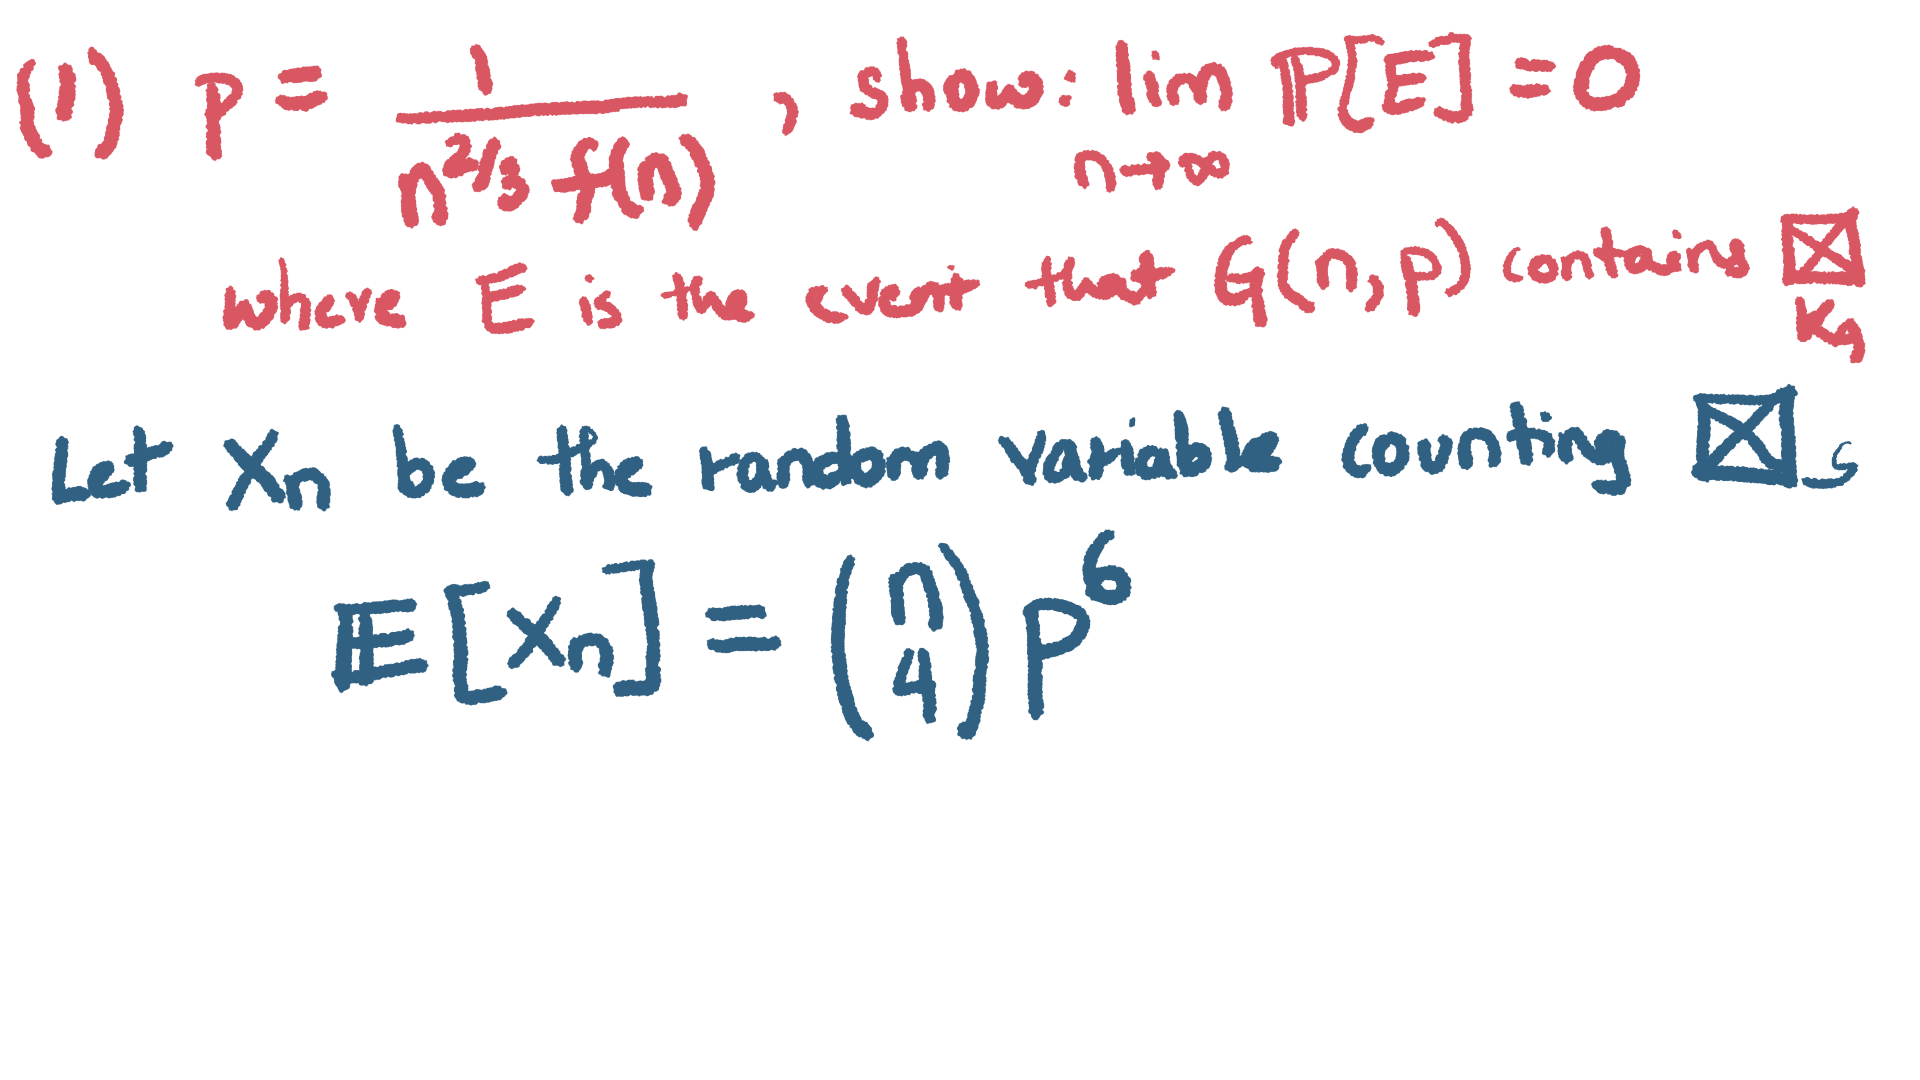 (1) p = 1 / (n^{2/3} f(n)) , show: lim_{n→∞} ℙ[E] = 0
where E is the event that G(n,p) contains ⊠ K₄
Let Xₙ be the random variable counting ⊠s
𝔼[Xₙ] = (n 4) p⁶